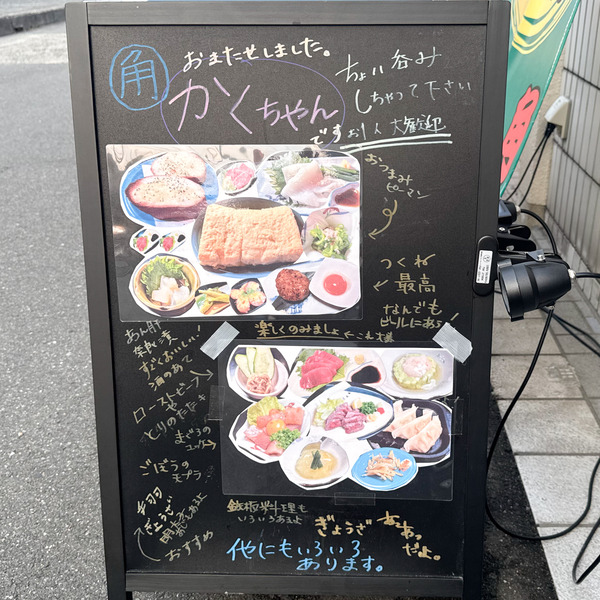 おまたせしました。
角
かくちゃん
です
ちょい呑み
しちゃって下さい
お1人 大歓迎
おつまみ
ピーマン
つくね
← 最高
なんでも
ビールにあう!
楽しくのみましょ ←これ大事
あん肝
奈良漬
すごくおいしい!
酒のあて
ローストビーフ
や
とりのたたき
まぐろの
ユッケ
ごぼうの
天プラ
手羽
ぎょうざ
おすすめ
鉄板料理も
いろいろあるよ
ぎょうざ
あるっ
だよ。
他にもいろいろ
あります。